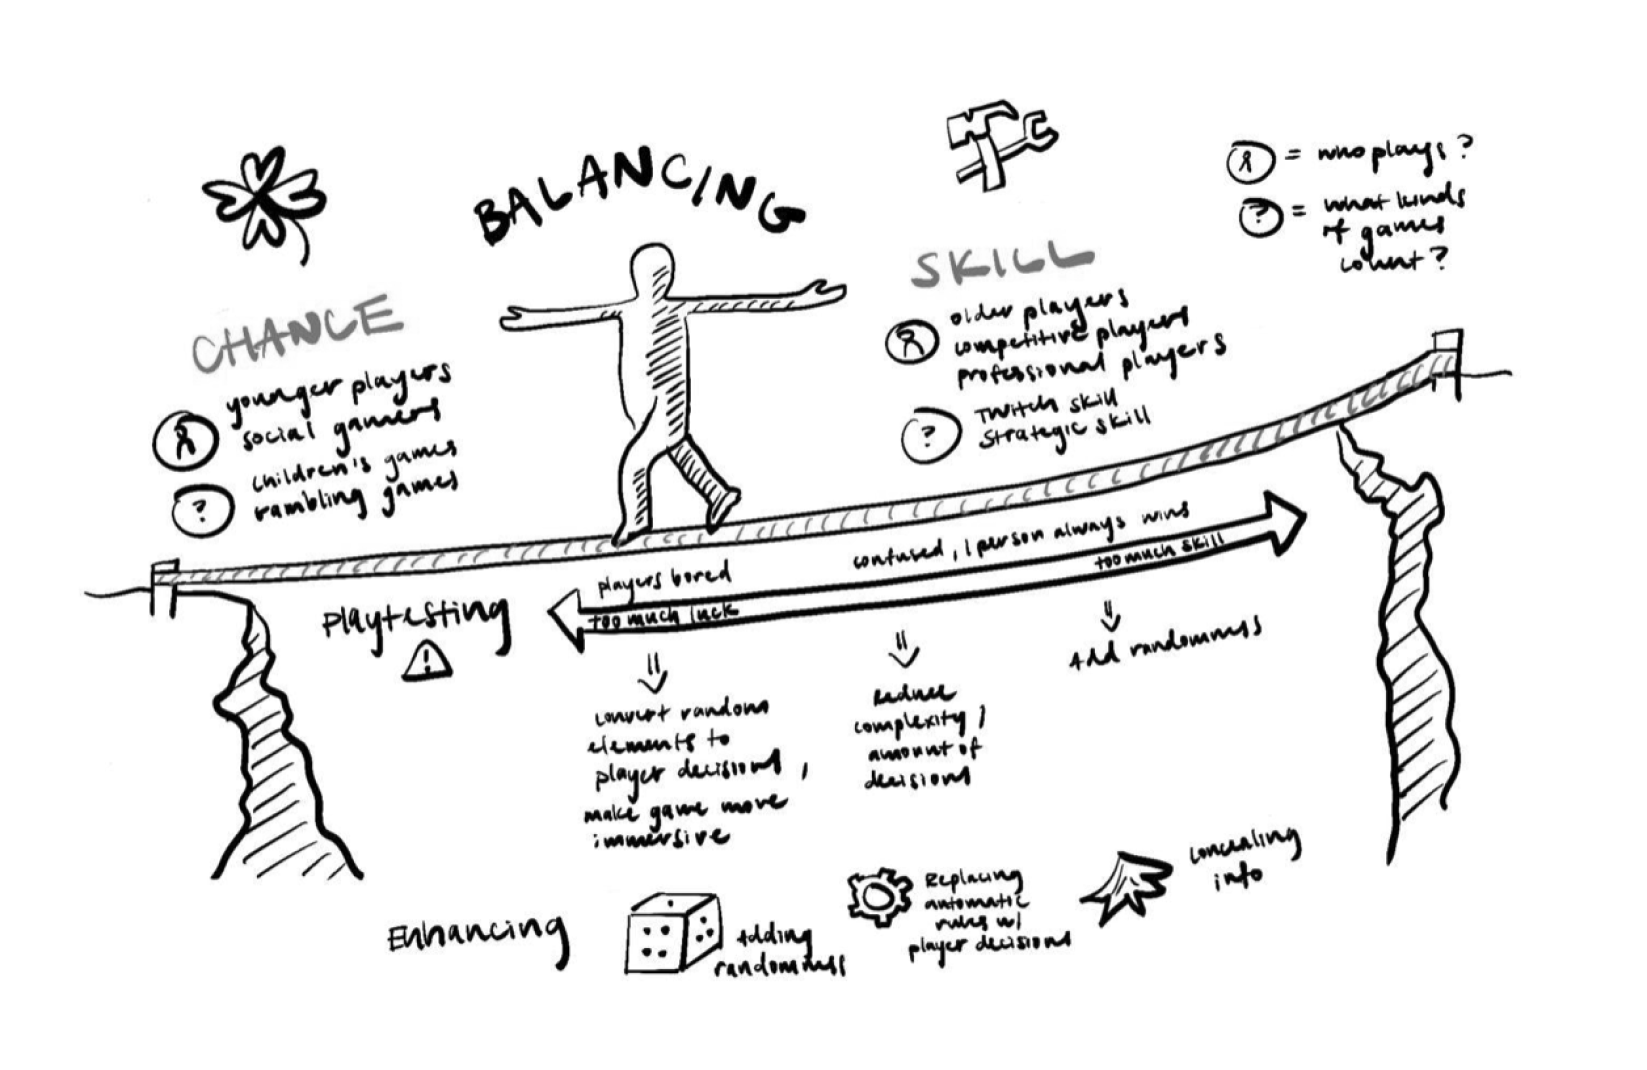 BALANCING
CHANCE
younger players
social gamers
?
children's games
rambling games
SKILL
older players
competitive players
professional players
?
Twitch skill
strategic skill
= who plays?
? = what kinds
of games
count?
Playtesting
!
players bored
too much luck
confused, 1 person always wins
too much skill
convert random
elements to
player decisions,
make game more
immersive
Reduce
complexity /
amount of
decisions
Add randomness
Enhancing
Adding
randomness
Replacing
automatic
rules w/
player decisions
concealing
info